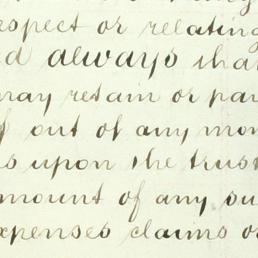 espect or relating
d always that
may retain or pay
f out of any mon
s upon the trust
mount of any su
xpenses claims or